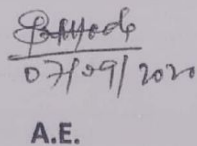 07/09/2020
A.E.